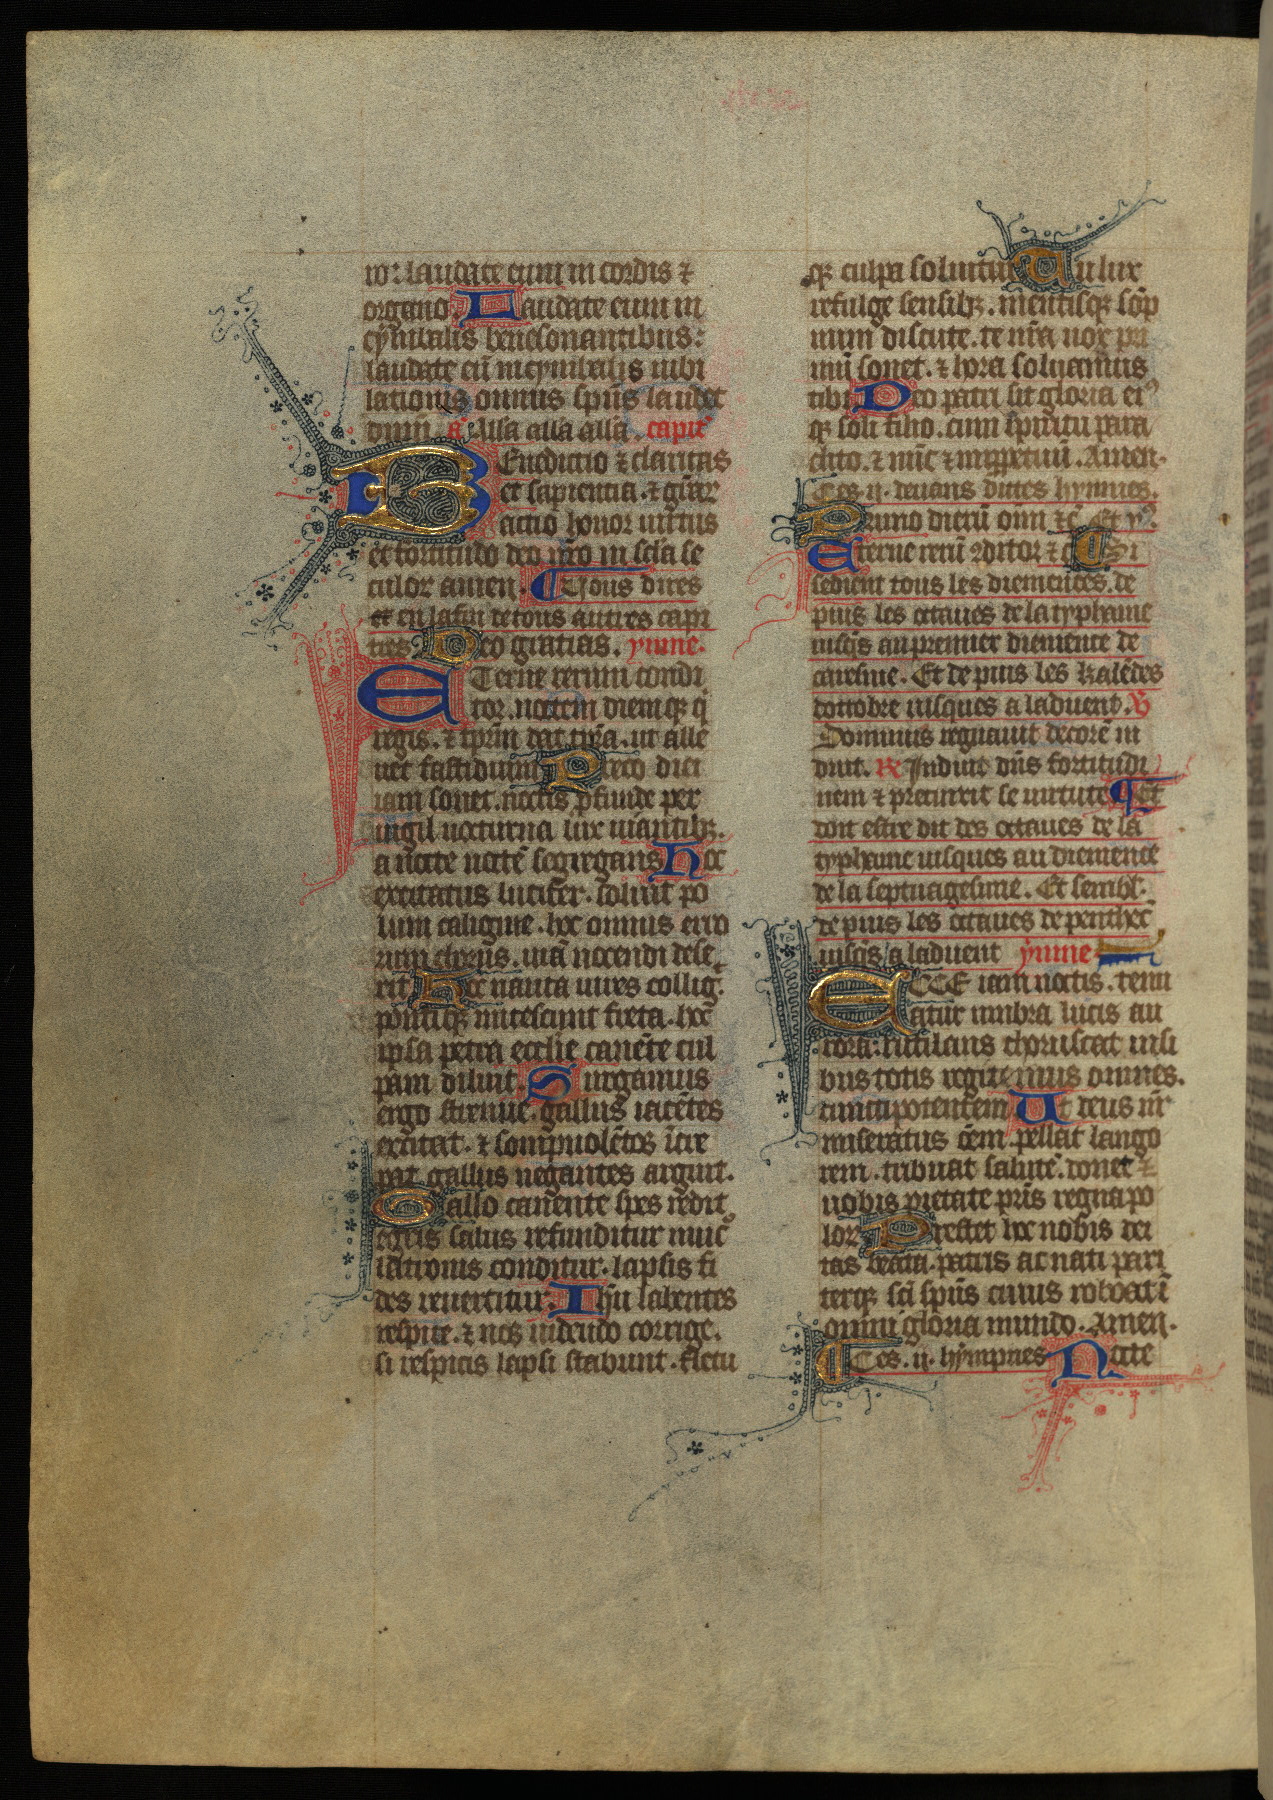 ro: laudate eum in cordis ⁊
organo. Laudate eum in
cymbalis benesonantibus:
laudate eū in cymbalis iubi
lationis omnis spūs laudet
dnm̄. a. Alla alla alla. capit̄
Benedictio ⁊ claritas
et sapientia. ⁊ gr̄ar
actio honor uirtus
et fortitudo deo nr̄o in scl̄a se
culor amen. Tous dites
et en la fin de tous autres capi
tres. Deo gratias. ymne.
ETerne rerum condi
tor. noctem diemq; q̇
regis. ⁊ tp̄rm̄ das tp̄ra. ut alle
ues fastidium Preco diei
iam sonet. noctis p̄funde per
uigil nocturna lux uiantib;.
a nocte nocte᷑ segregans Hoc
excitatus lucifer. soluit po
lum caligine. hoc omnis erro
rum chorus. uiā nocendi dese
rit Hoc nauta uires collig̅.
pontiq; mitescunt freta. hoc
ipsa petra ecclie canēte cul
pam diluit. Surgamus
ergo strenue. gallus iacētes
excitat. ⁊ sompnolētos īcre
pat. gallus negantes arguit.
Gallo canente spes redit,
egris salus refunditur muc̄
latronis conditur. lapsis fi
des reuertitur. Ihū labentes
respice. ⁊ nos uidendo corrige.
si respicis lapsi stabunt. fletu
q; culpa soluitur Tu lux
refulge sensib;. mentisq; sōp
num discute. te nr̄a uox pri
mū sonet. ⁊ hora soluamus
tibi Deo patri sit gloria ei⁹
q; soli filio. cum spiritu para
clito. ⁊ nūc ⁊ in ppetuū. Amen.
Ces .ij. deuans dittes hymnes.
Primo dierū oīm ⁊c̄. Et ỹ.
Eterne rerū 9ditor ⁊ c̄ Si
sedient tous les diemences. de
puis les octaues de la typhanie
iusq̄s au premier diemence de
caresme. Et de puis les kalēdes
doctobre iusques a laduent. V̄
Dominus regnauit decorē in
duit. R̄ Induit dn̄s fortitudi
nem ⁊ precinxit se uirtute Et
doit estre dit des octaues de la
typhane iusques au diemence
de la septuagesime. Et sembl̄.
de puis les octaues de penthec̄
iusq̄s a laduent ymne
ECCE iam noctis. tenu
atur umbra lucis au
rora: rutilans choruscat nisi
bus totis rogitemus omnes.
cunctipotentem Ut deus nr̄
miseratus oēm. pellat lango
rem. tribuat salutē. donet ⁊
nobis pietate pr̄is regna po
lor Prestet hoc nobis dei
tas beata. patris ac nati pari
terq; sc̄i spūs cuius reboat ī
omni gloria mundo. Amen.
Ces .ij. hympnes Nocte